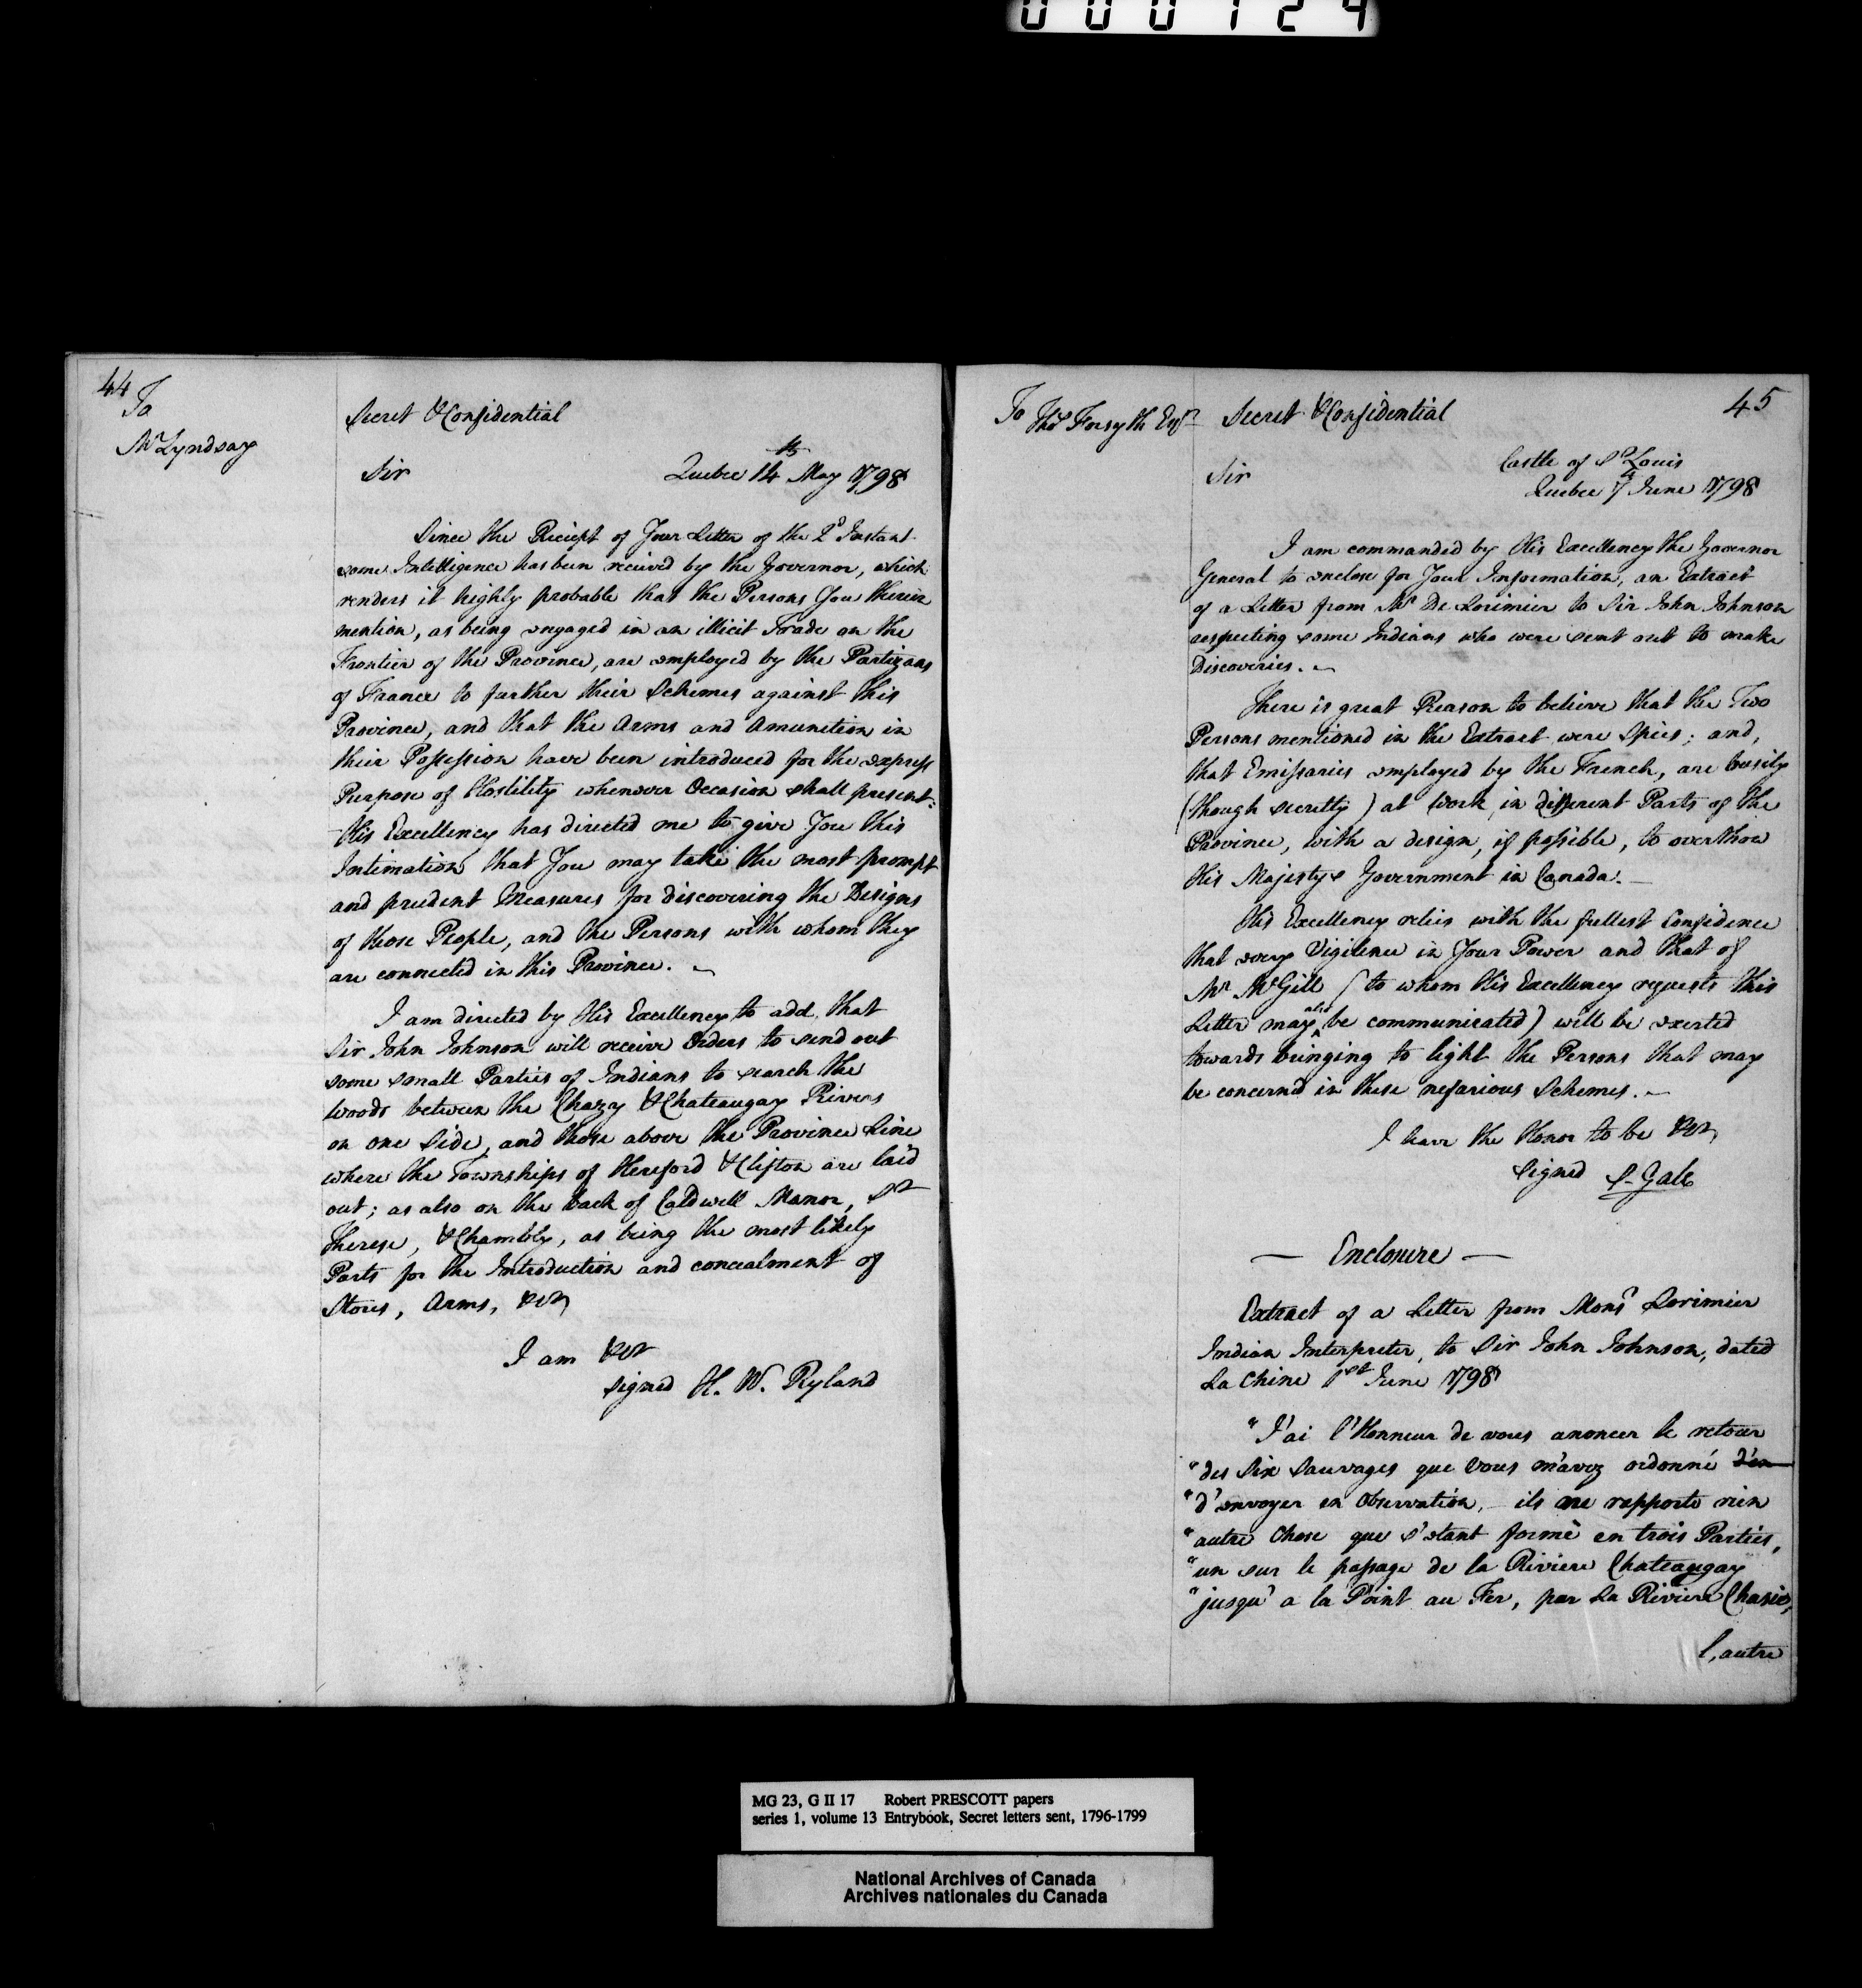 000124
44
To
Mr Lyndsay
Secret & Confidential
Sir
Quebec 14th May 1798
Since the Reciept of Your Letter of the 2d Instant
some Intelligence has been received by the Governor, which
renders it highly probable that the Persons You therein
mention, as being engaged in an illicit Trade on the
Frontier of the Province, are employed by the Partizans
of France to further their Schemes against this
Province, and that the Arms and Amunition in
their Possession have been introduced for the express
Purpose of Hostility whenever Occasion shall present:
His Excellency has directed me to give You this
Intimation that You may take the most prompt
and prudent Measures for discovering the Designs
of those People, and the Persons with whom they
are connected in this Province.
I am directed by His Excellency to add, that
Sir John Johnson will receive Orders to send out
some small Parties of Indians to search the
Woods between the Chazy & Chateaugay Rivers
on one Side, and those above the Province Line
where the Townships of Hereford & Clifton are laid
out; as also on the back of Caldwell Manor, St
Therese, & Chambly, as being the most likely
Parts for the Introduction and concealment of
Stores, Arms, &c
I am &c
signed H. W. Ryland
45
To Thos Forsyth Esqr
Secret & Confidential
Castle of St Louis
Sir
Quebec 7th June 1798
I am commanded by His Excellency the Governor
General to enclose for Your Information, an Extract
of a Letter from Mr De Lorimier to Sir John Johnson
respecting some Indians who were sent out to make
Discoveries.
There is great Reason to believe that the Two
Persons mentioned in the Extract were Spies; and,
that Emissaries employed by the French, are busily
(though secretly) at Work, in different Parts of the
Province, with a design, if possible, to overthrow
His Majestys Government in Canada.
His Excellency relies with the fullest Confidence
that every Vigilence in Your Power and that of
Mr McGill (to whom His Excellency requests this
Letter may also be communicated) will be exerted
towards bringing to light the Persons that may
be concernd in these nefarious Schemes.
I have the Honor to be &c
signed S. Gale
— Enclosure —
Extract of a Letter from Monsr Lorimier
Indian Interpreter, to Sir John Johnson, dated
La Chine 1st June 1798
"J'ai l'Honneur de vous anoncer le retour
"des Six Sauvages que vous m'avez ordonné d'en
"d'envoyer en Observation, ils ne rapporte rien
"autre Chose que s'etant formé en trois Parties,
"un sur le passage de la Riviere Chateaugay
"jusqu' a la Point au Fer, par La Riviere Chasie,
l,autre
MG 23, G II 17 Robert PRESCOTT papers
series 1, volume 13 Entrybook, Secret letters sent, 1796-1799
National Archives of Canada
Archives nationales du Canada